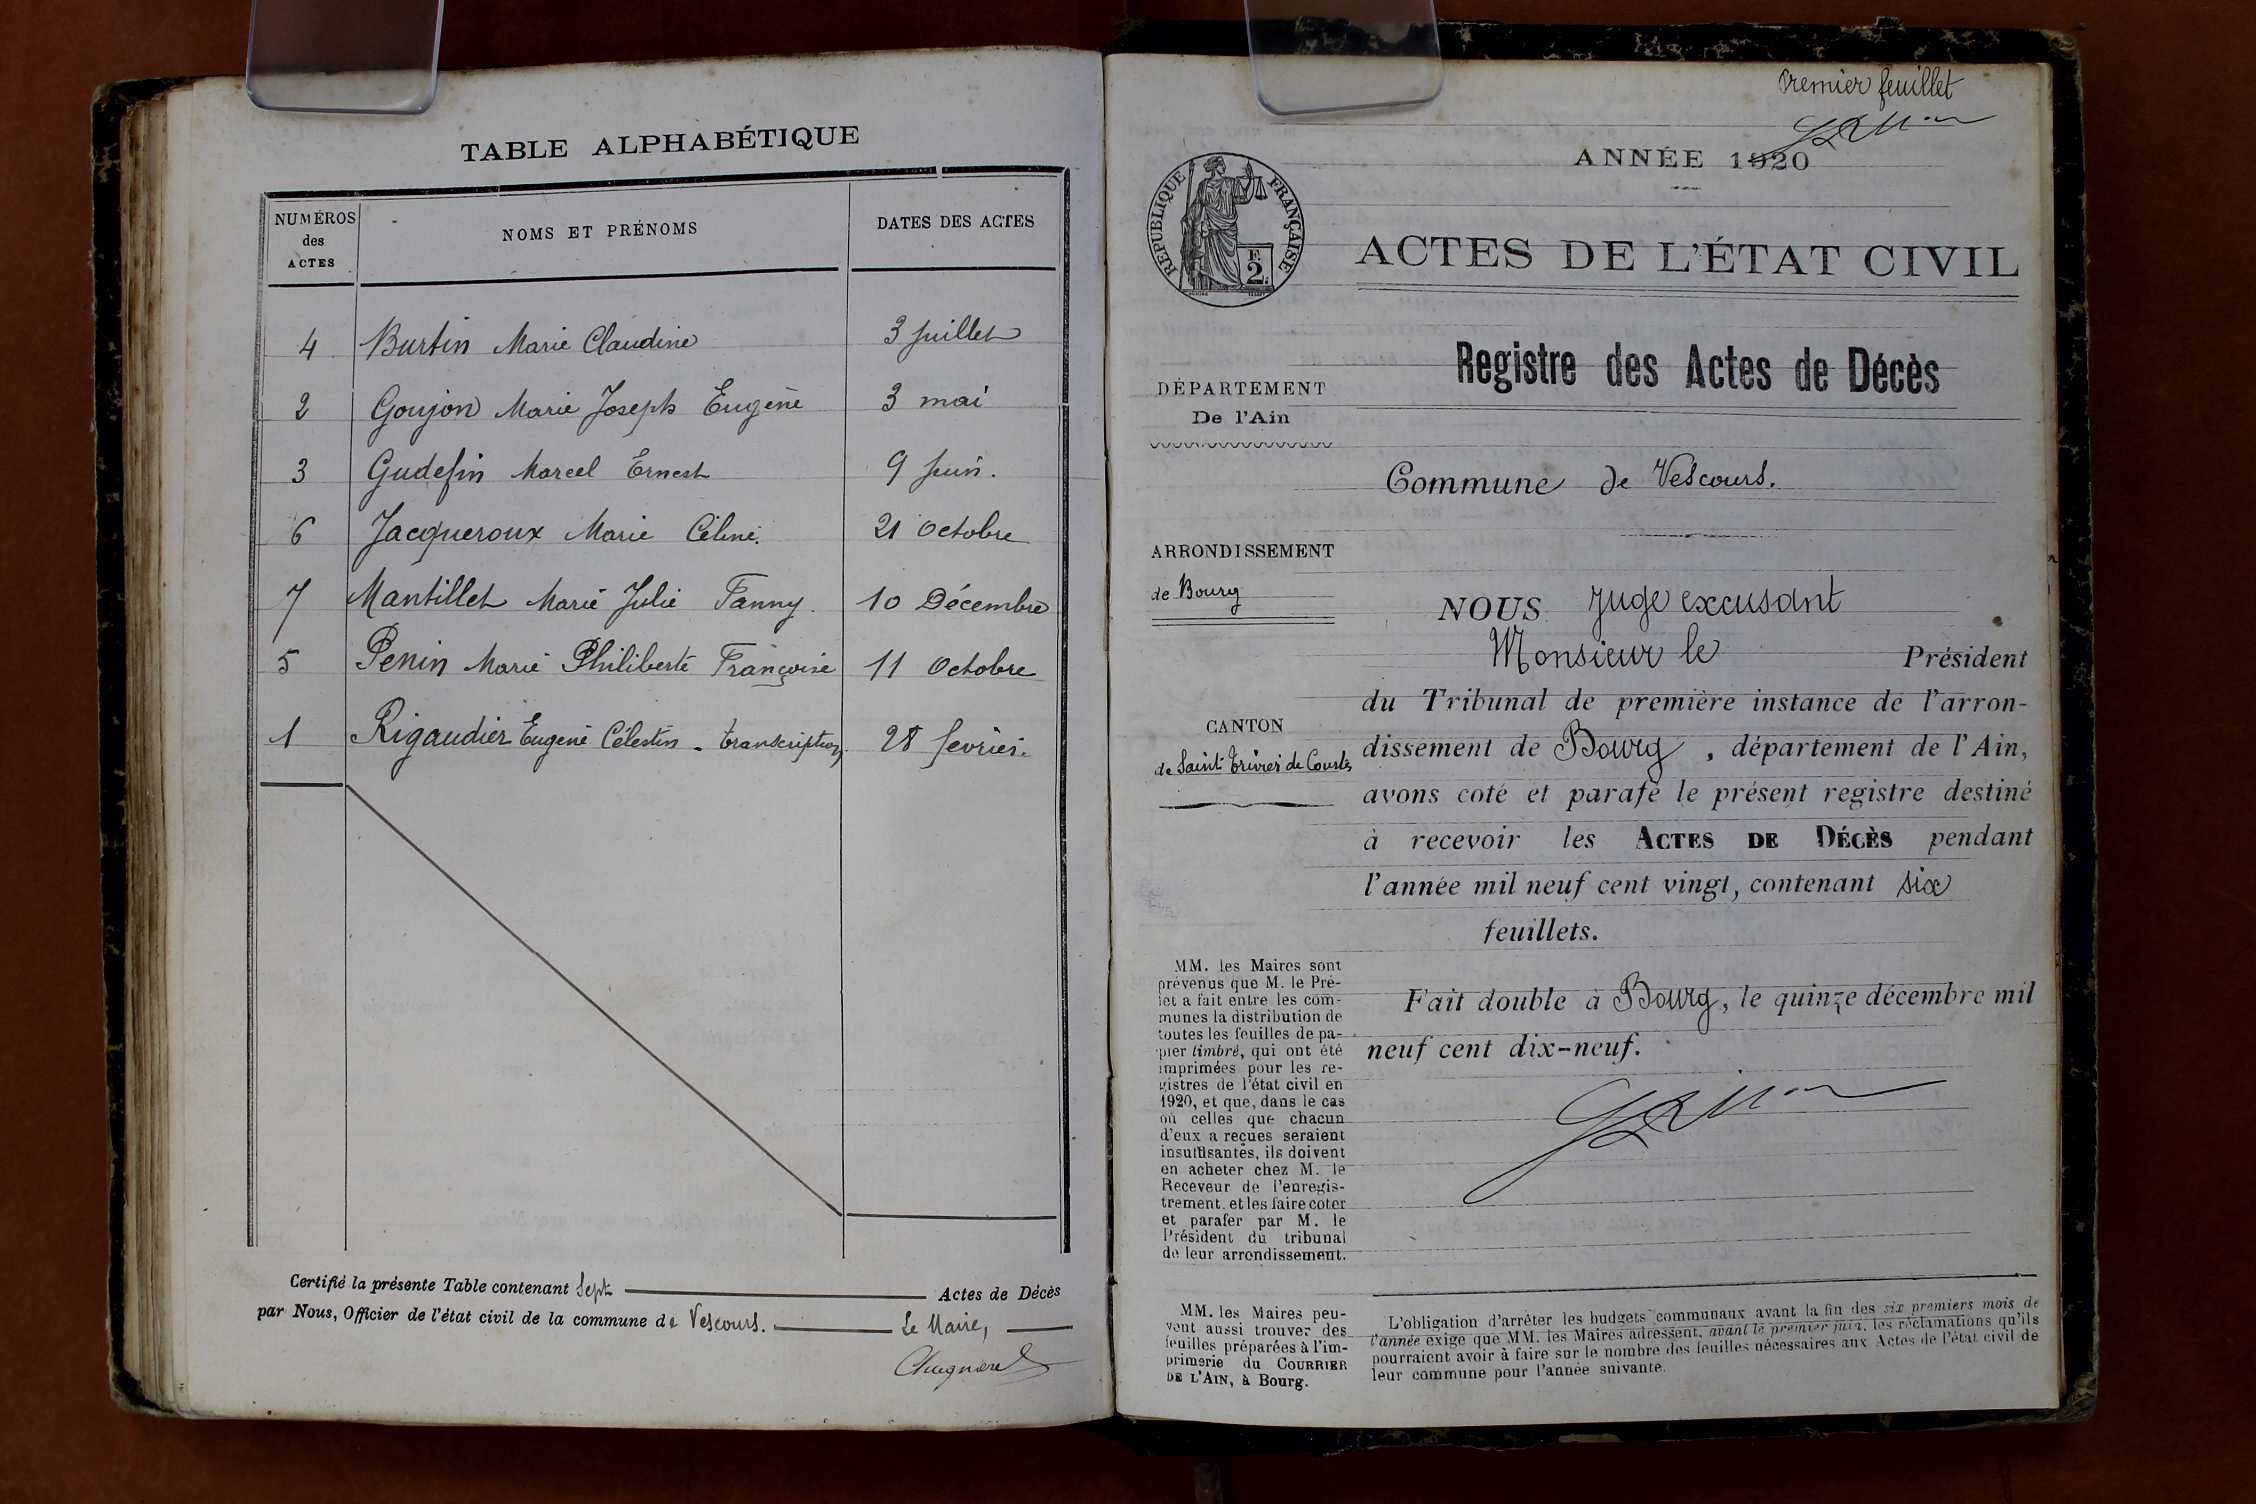 TABLE ALPHABÉTIQUE
NUMÉROS des ACTES NOMS ET PRÉNOMS DATES DES ACTES
4 Burtin Marie Claudine 3 Juillet
2 Goujon Marie Joseph Eugène 3 mai
3 Gudefin Marcel Ernest 9 Juin.
6 Jacqueroux Marie Céline. 21 Octobre
7 Mantillet Marie Julie Fanny 10 Décembre
5 Penin Marie Philiberte Françoise 11 Octobre
1 Rigaudier Eugène Célestin - transcription 28 février.
Certifié la présente Table contenant Sept Actes de Décès
par Nous, Officier de l'état civil de la commune de Vescours. Le Maire,
Premier feuillet
ANNÉE 1920
RÉPUBLIQUE FRANÇAISE
2F.
ACTES DE L'ÉTAT CIVIL
Registre des Actes de Décès
DÉPARTEMENT
De l'Ain
Commune de Vescours.
ARRONDISSEMENT
de Bourg
CANTON
de Saint Trivier de Courtes
MM. les Maires sont
prévenus que M. le Pré-
fet a fait entre les com-
munes la distribution de
toutes les feuilles de pa-
pier timbré, qui ont été
imprimées pour les re-
gistres de l'état civil en
1920, et que, dans le cas
où celles que chacun
d'eux a reçues seraient
insuffisantes, ils doivent
en acheter chez M. le
Receveur de l'enregis-
trement. et les faire coter
et parafer par M. le
Président du tribunal
de leur arrondissement.
MM. les Maires peu-
vent aussi trouver des
feuilles préparées à l'im-
primerie du COURRIER
DE L'AIN, à Bourg.
NOUS Juge excusant
Monsieur le Président
du Tribunal de première instance de l'arron-
dissement de Bourg, département de l'Ain,
avons coté et parafé le présent registre destiné
à recevoir les ACTES DE DÉCÈS pendant
l'année mil neuf cent vingt, contenant six
feuillets.
Fait double à Bourg, le quinze décembre mil
neuf cent dix-neuf.
L'obligation d'arrêter les budgets communaux avant la fin des six premiers mois de
l'année exige que MM. les Maires adressent, avant le premier juin, les réclamations qu'ils
pourraient avoir à faire sur le nombre des feuilles nécessaires aux Actes de l'état civil de
leur commune pour l'année suivante.